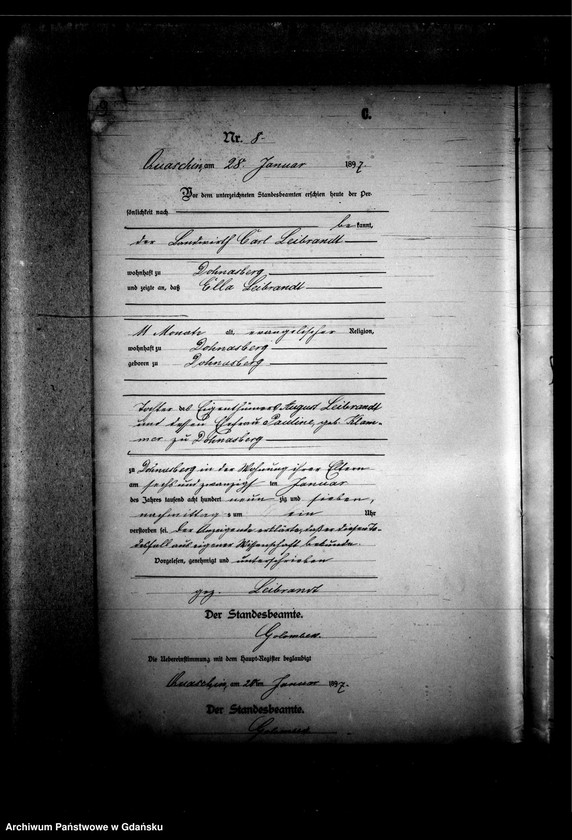 C.
Nr. 8.
Quaschin, am 28. Januar 1897.
Vor dem unterzeichneten Standesbeamten erschien heute der Per-
sönlichkeit nach
be kannt,
der Landwirth Carl Leibrandt
wohnhaft zu Dohnasberg
und zeigte an, daß Ella Leibrandt
11 Monate alt, evangelischer Religion,
wohnhaft zu Dohnasberg
geboren zu Dohnasberg
Tochter des Eigenthümers August Leibrandt
und dessen Ehefrau Pauline, geb. Klam-
mer zu Dohnasberg
zu Dohnasberg in der Wohnung ihrer Eltern
am sechs und zwanzigsten Januar
des Jahres tausend acht hundert neun zig und sieben,
nachmittags um ein Uhr
verstorben sei. Der Anzeigende erklärte, daß er diesen To-
desfall aus eigener Wissenschaft bekunde.
Vorgelesen, genehmigt und unterschrieben
gez. Leibrandt
Der Standesbeamte.
Golombek.
Die Uebereinstimmung mit dem Haupt-Register beglaubigt
Quaschin, am 28ten Januar 1897.
Der Standesbeamte.
Golombek
Archiwum Państwowe w Gdańsku